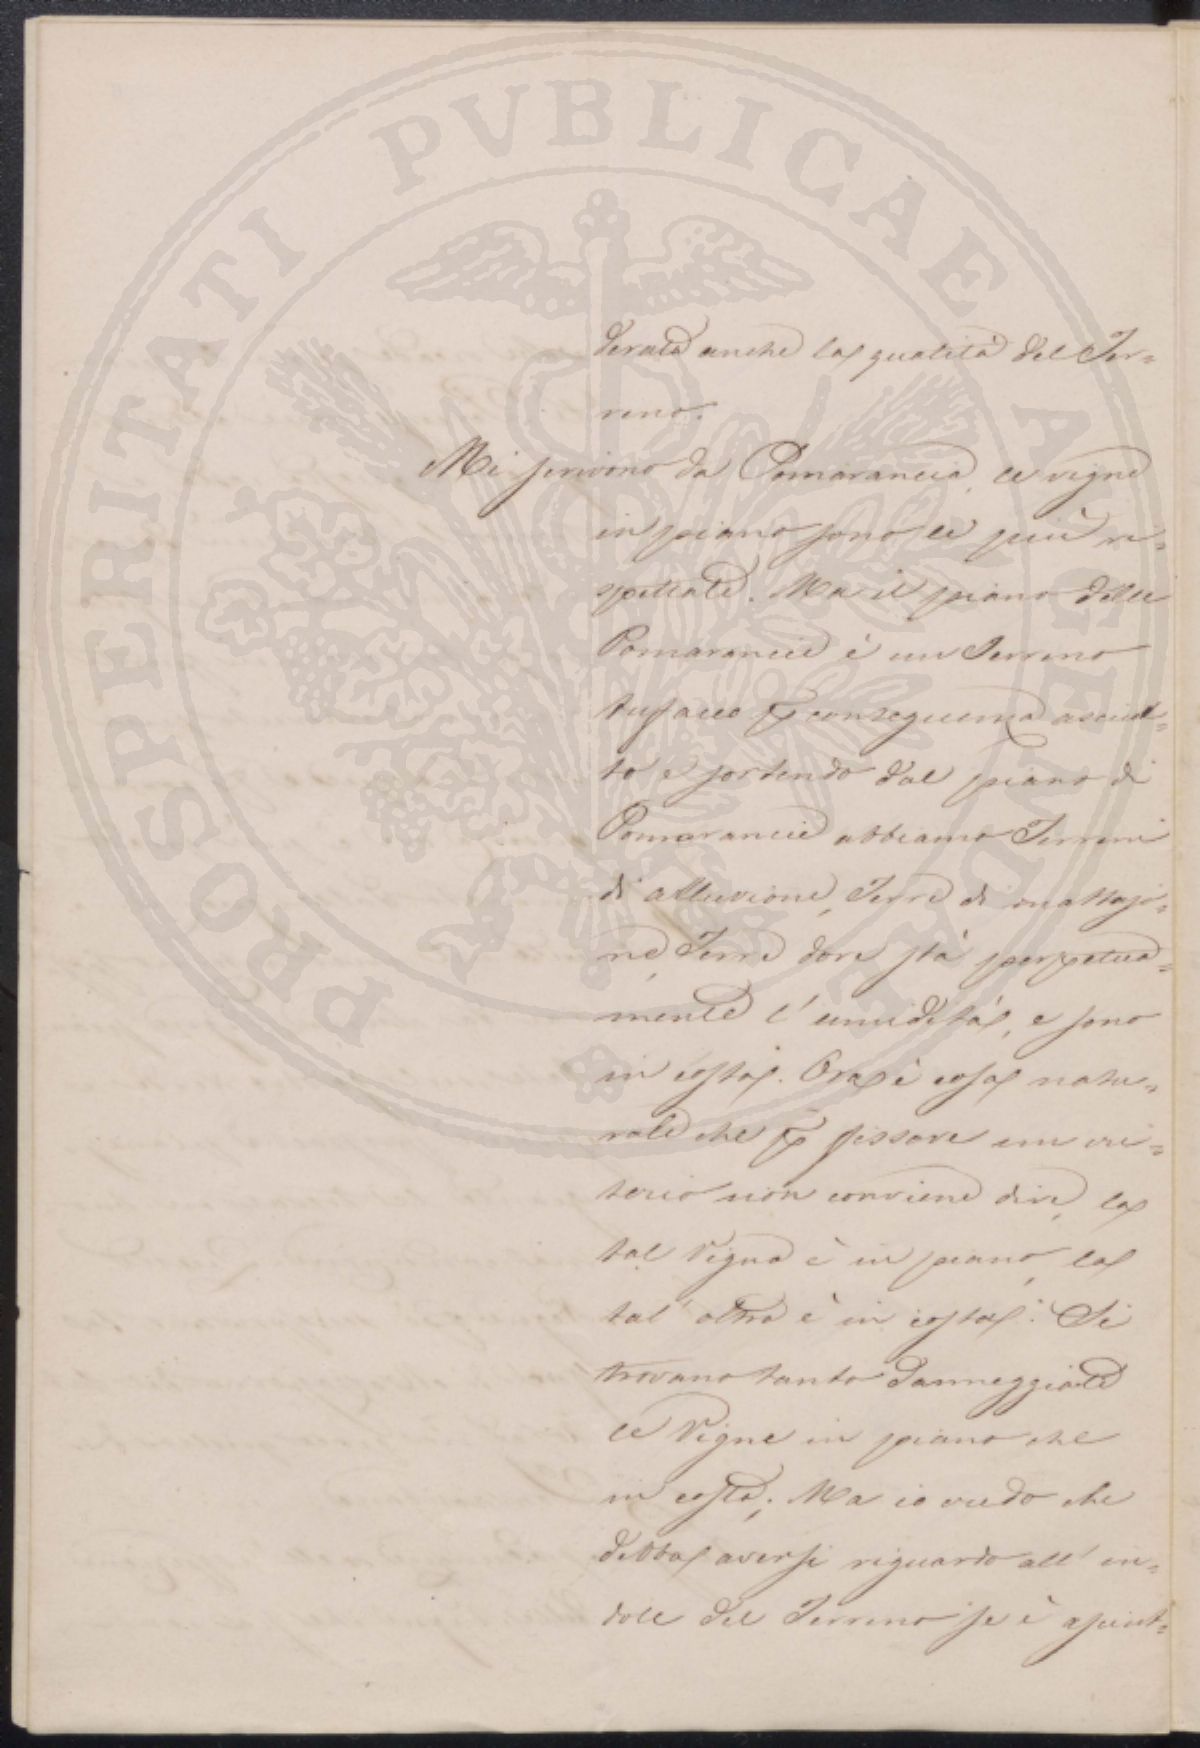 PROSPERITATI PVBLICAE AVGENDAE
derata anche la qualità del Ter=
reno.
Mi scrivono da Pomarancia, le vigne
in piano sono le più ri=
spettate. Ma il piano delle
Pomarancie è un Terreno
tufaceo p conseguenza asciut=
to e sortendo dal piano di
Pomarancie abbiamo Terreni
di alluvione, Terre di mattajo=
ne, Terre dove stà perpetua=
mente l'umidità, e sono
in costa. Ora è cosa natu=
rale che p fissare un cri=
terio non conviene dire, la
tal Vigna è in piano, la
tal'altra è in costa: Si
trovano tanto danneggiate
le Vigne in piano che
in costa; Ma io credo che
debba aversi riguardo all'in=
dole del Terreno se è asciut=